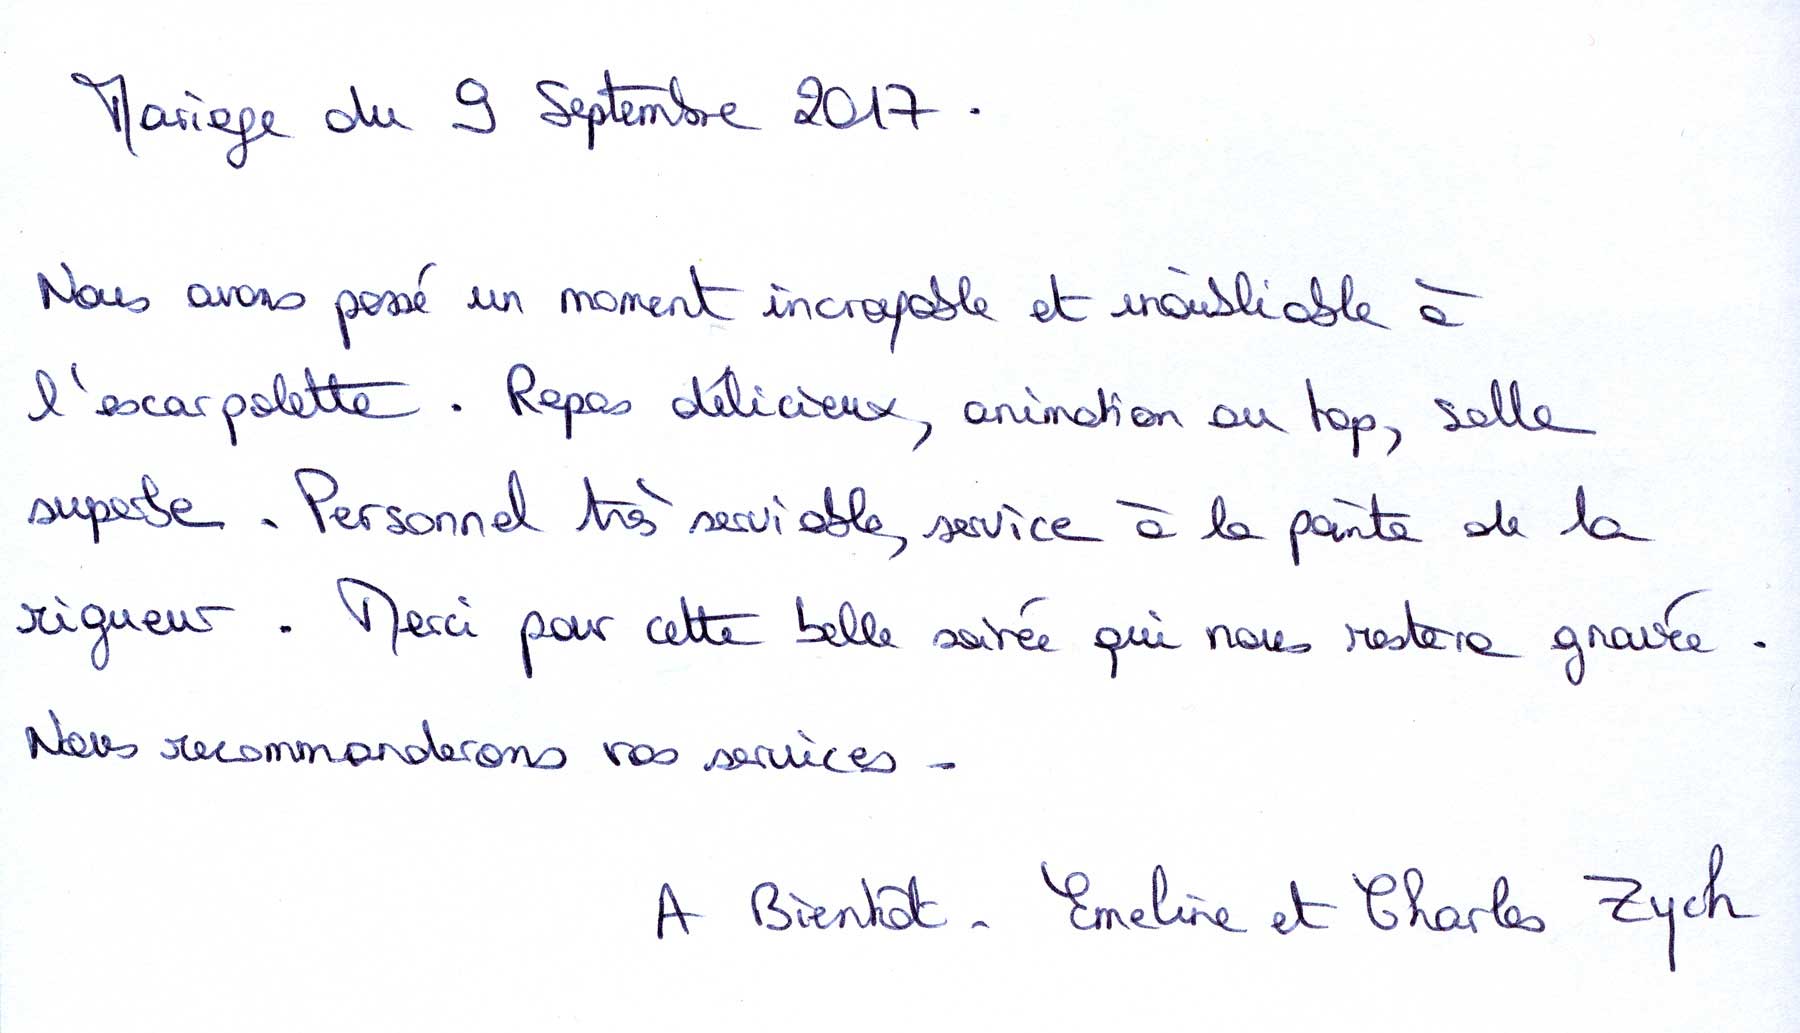 Mariage du 9 Septembre 2017.
Nous avons passé un moment incroyable et inoubliable à
l'escarpolette. Repas délicieux, animation au top, salle
superbe. Personnel très serviable, service à la pointe de la
rigueur. Merci pour cette belle soirée qui nous restera gravée.
Nous recommanderons vos services.
A Bientôt. Emeline et Charles Zych